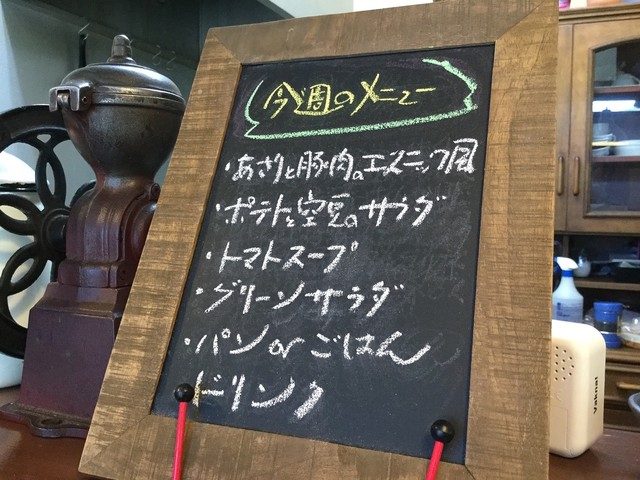 今週のメニュー
・あさりと豚肉のエスニック風
・ポテトと空豆のサラダ
・トマトスープ
・グリーンサラダ
・パン or ごはん
ドリンク
Vaknal